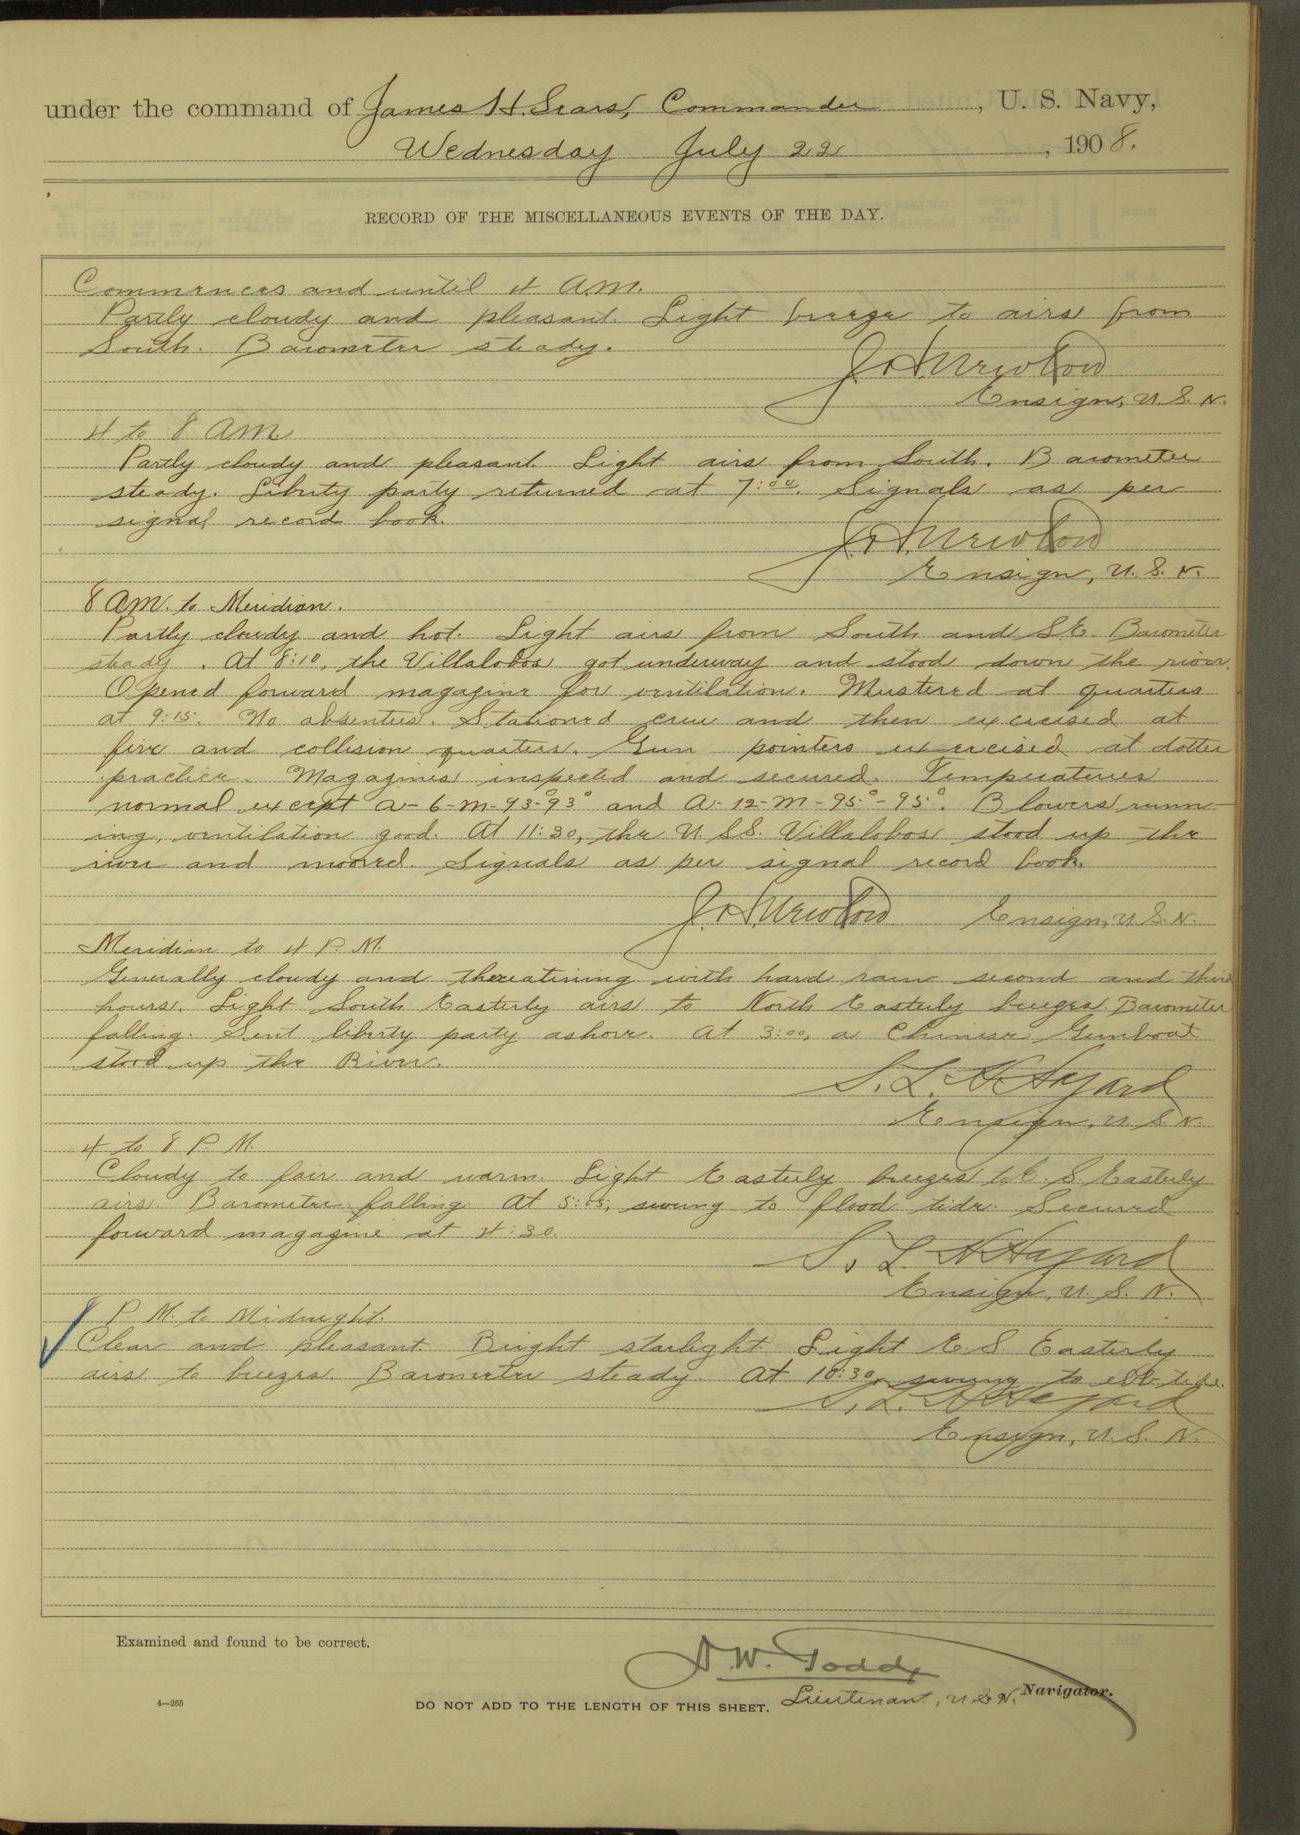 under the command of James H. Sears, Commander, U. S. Navy,
Wednesday July 22, 1908.
RECORD OF THE MISCELLANEOUS EVENTS OF THE DAY.
Commences and until 4 A.M.
Partly cloudy and pleasant. Light breeze to airs from
South. Barometer steady.
Ensign, U. S. N.
4 to 8 AM
Partly cloudy and pleasant. Light airs from South. Barometer
steady. Liberty party returned at 7:00. Signals as per
signal record book.
Ensign, U. S. N.
8 AM. to Meridian.
Partly cloudy and hot. Light airs from South and S.E. Barometer
steady. At 8:10, the Villalobos got underway and stood down the river.
Opened forward magazine for ventilation. Mustered at quarters
at 9:15. No absentees. Stationed crew and then exercised at
fire and collision quarters. Gun pointers exercised at dotter
practice. Magazines inspected and secured. Temperatures
normal except A-6-M-93°-93° and A-12-M-95°-95°. Blowers runn-
ing, ventilation good. At 11:30, the U.S.S. Villalobos stood up the
river and moored. Signals as per signal record book.
Ensign, U.S.N.
Meridian to 4 P. M.
Generally cloudy and threatining with hard rain second and third
hours. Light South Easterly airs to North Easterly breezes. Barometer
falling. Sent liberty party ashore. At 3:00, a Chinese Gunboat
stood up the River.
Ensign, U. S. N.
4 to 8 P. M.
Cloudy to fair and warm. Light Easterly breezes to E. S. Easterly
airs. Barometer falling. At 5:05, swung to flood tide. Secured
forward magazine at 4:30.
Ensign, U. S. N.
8 P. M. to Midnight.
Clear and pleasant. Bright starlight. Light E S Easterly
airs to breezes. Barometer steady. At 10:30, swung to ebb tide.
Ensign, U. S. N.
Examined and found to be correct.
D. W. Todd,
Lieutenant, U.S.N. Navigator.
4—265
DO NOT ADD TO THE LENGTH OF THIS SHEET.